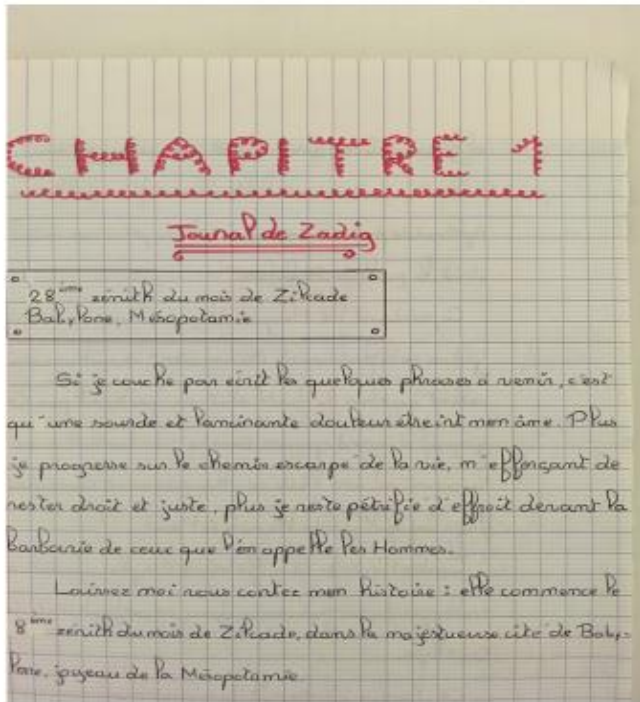 CHAPITRE 1
Jounal de Zadig
28ème zénith du mois de Zilcade
Babylone, Mésopotamie
Si je couche par écrit les quelques phrases à venir, c'est
qu'une sourde et lancinante douleur étreint mon âme. Plus
je progresse sur le chemin escarpé de la vie, m'efforçant de
rester droit et juste, plus je reste pétrifié d'effroit devant la
barbarie de ceux que l'on appelle les Hommes.
Laissez moi vous contez mon histoire : elle commence le
8ème zénith du mois de Zilcade, dans la majestueuse cité de Baby-
lone, joyeau de la Mésopotamie